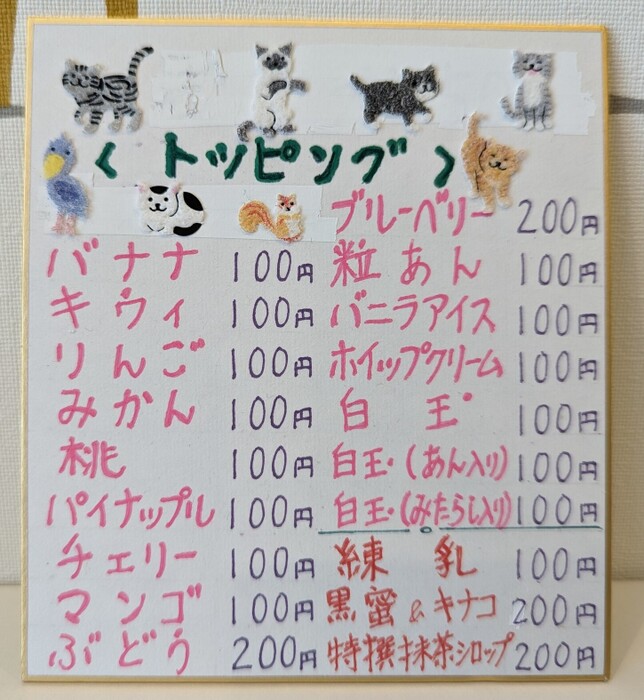 〈 トッピング 〉
バナナ 100円
キウィ 100円
りんご 100円
みかん 100円
桃 100円
パイナップル 100円
チェリー 100円
マンゴ 100円
ぶどう 200円
ブルーベリー 200円
粒あん 100円
バニラアイス 100円
ホイップクリーム 100円
白玉 100円
白玉・(あん入り) 100円
白玉・(みたらし入り) 100円
練乳 100円
黒蜜&キナコ 200円
特撰抹茶シロップ 200円